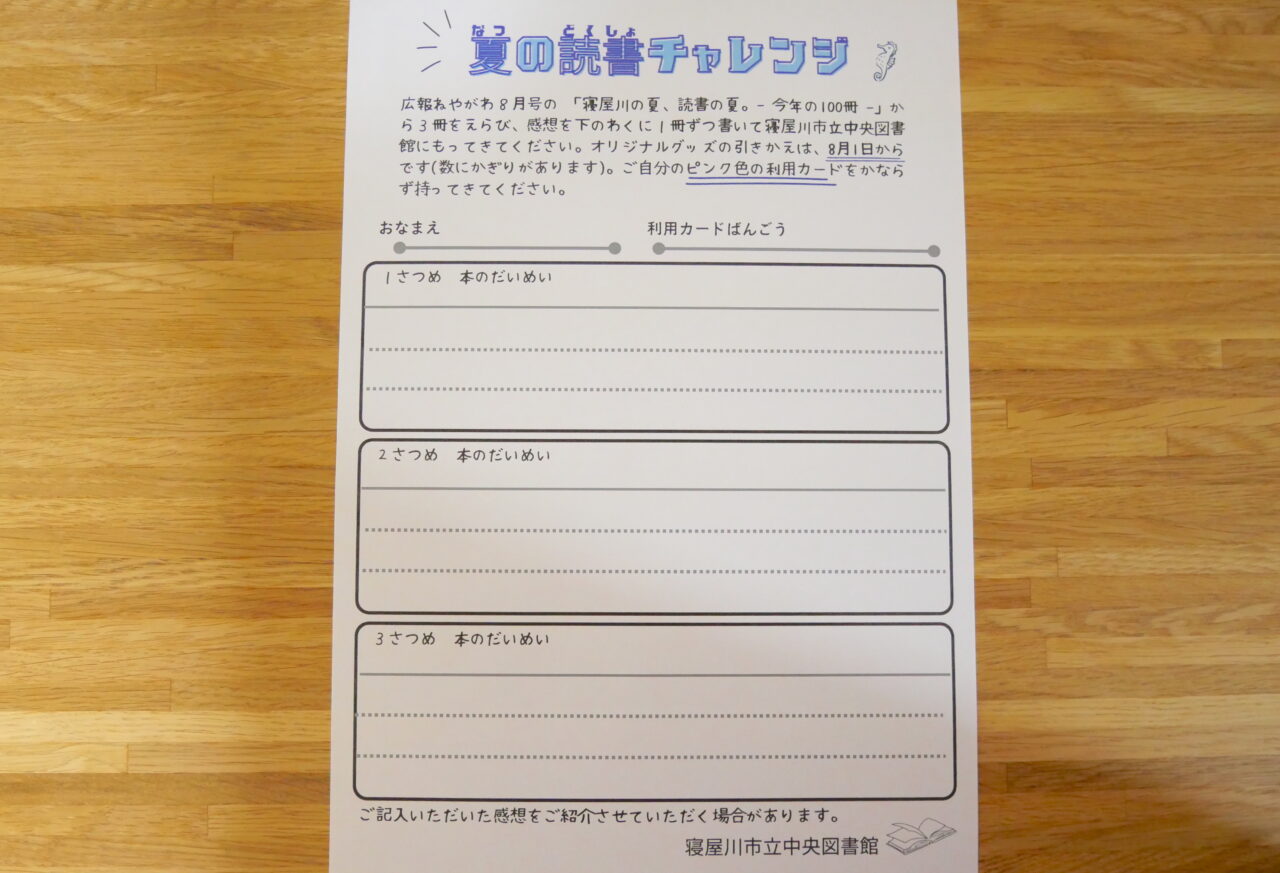 なつ どくしょ
夏の読書チャレンジ
広報ねやがわ8月号の 「寝屋川の夏、読書の夏。- 今年の100冊 -」か
ら3冊をえらび、感想を下のわくに1冊ずつ書いて寝屋川市立中央図書
館にもってきてください。オリジナルグッズの引きかえは、8月1日から
です(数にかぎりがあります)。ご自分のピンク色の利用カードをかなら
ず持ってきてください。
おなまえ 利用カードばんごう
1さつめ 本のだいめい
2さつめ 本のだいめい
3さつめ 本のだいめい
ご記入いただいた感想をご紹介させていただく場合があります。
寝屋川市立中央図書館